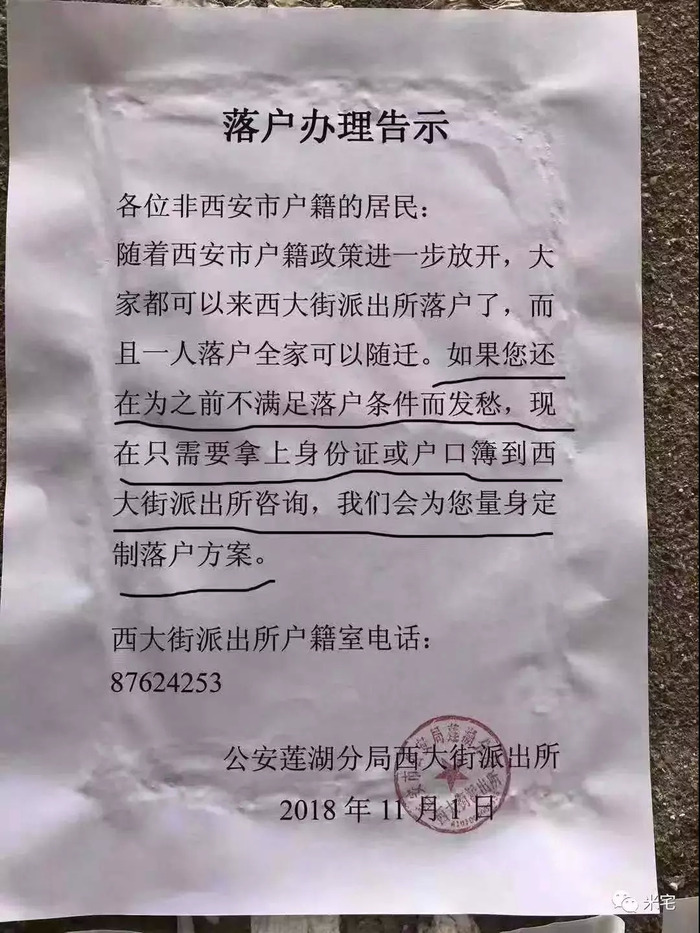 落户办理告示
各位非西安市户籍的居民：
随着西安市户籍政策进一步放开，大
家都可以来西大街派出所落户了，而
且一人落户全家可以随迁。如果您还
在为之前不满足落户条件而发愁，现
在只需要拿上身份证或户口簿到西
大街派出所咨询，我们会为您量身定
制落户方案。
西大街派出所户籍室电话：
87624253
公安莲湖分局西大街派出所
2018年11月1日
西大街派出所
米宅